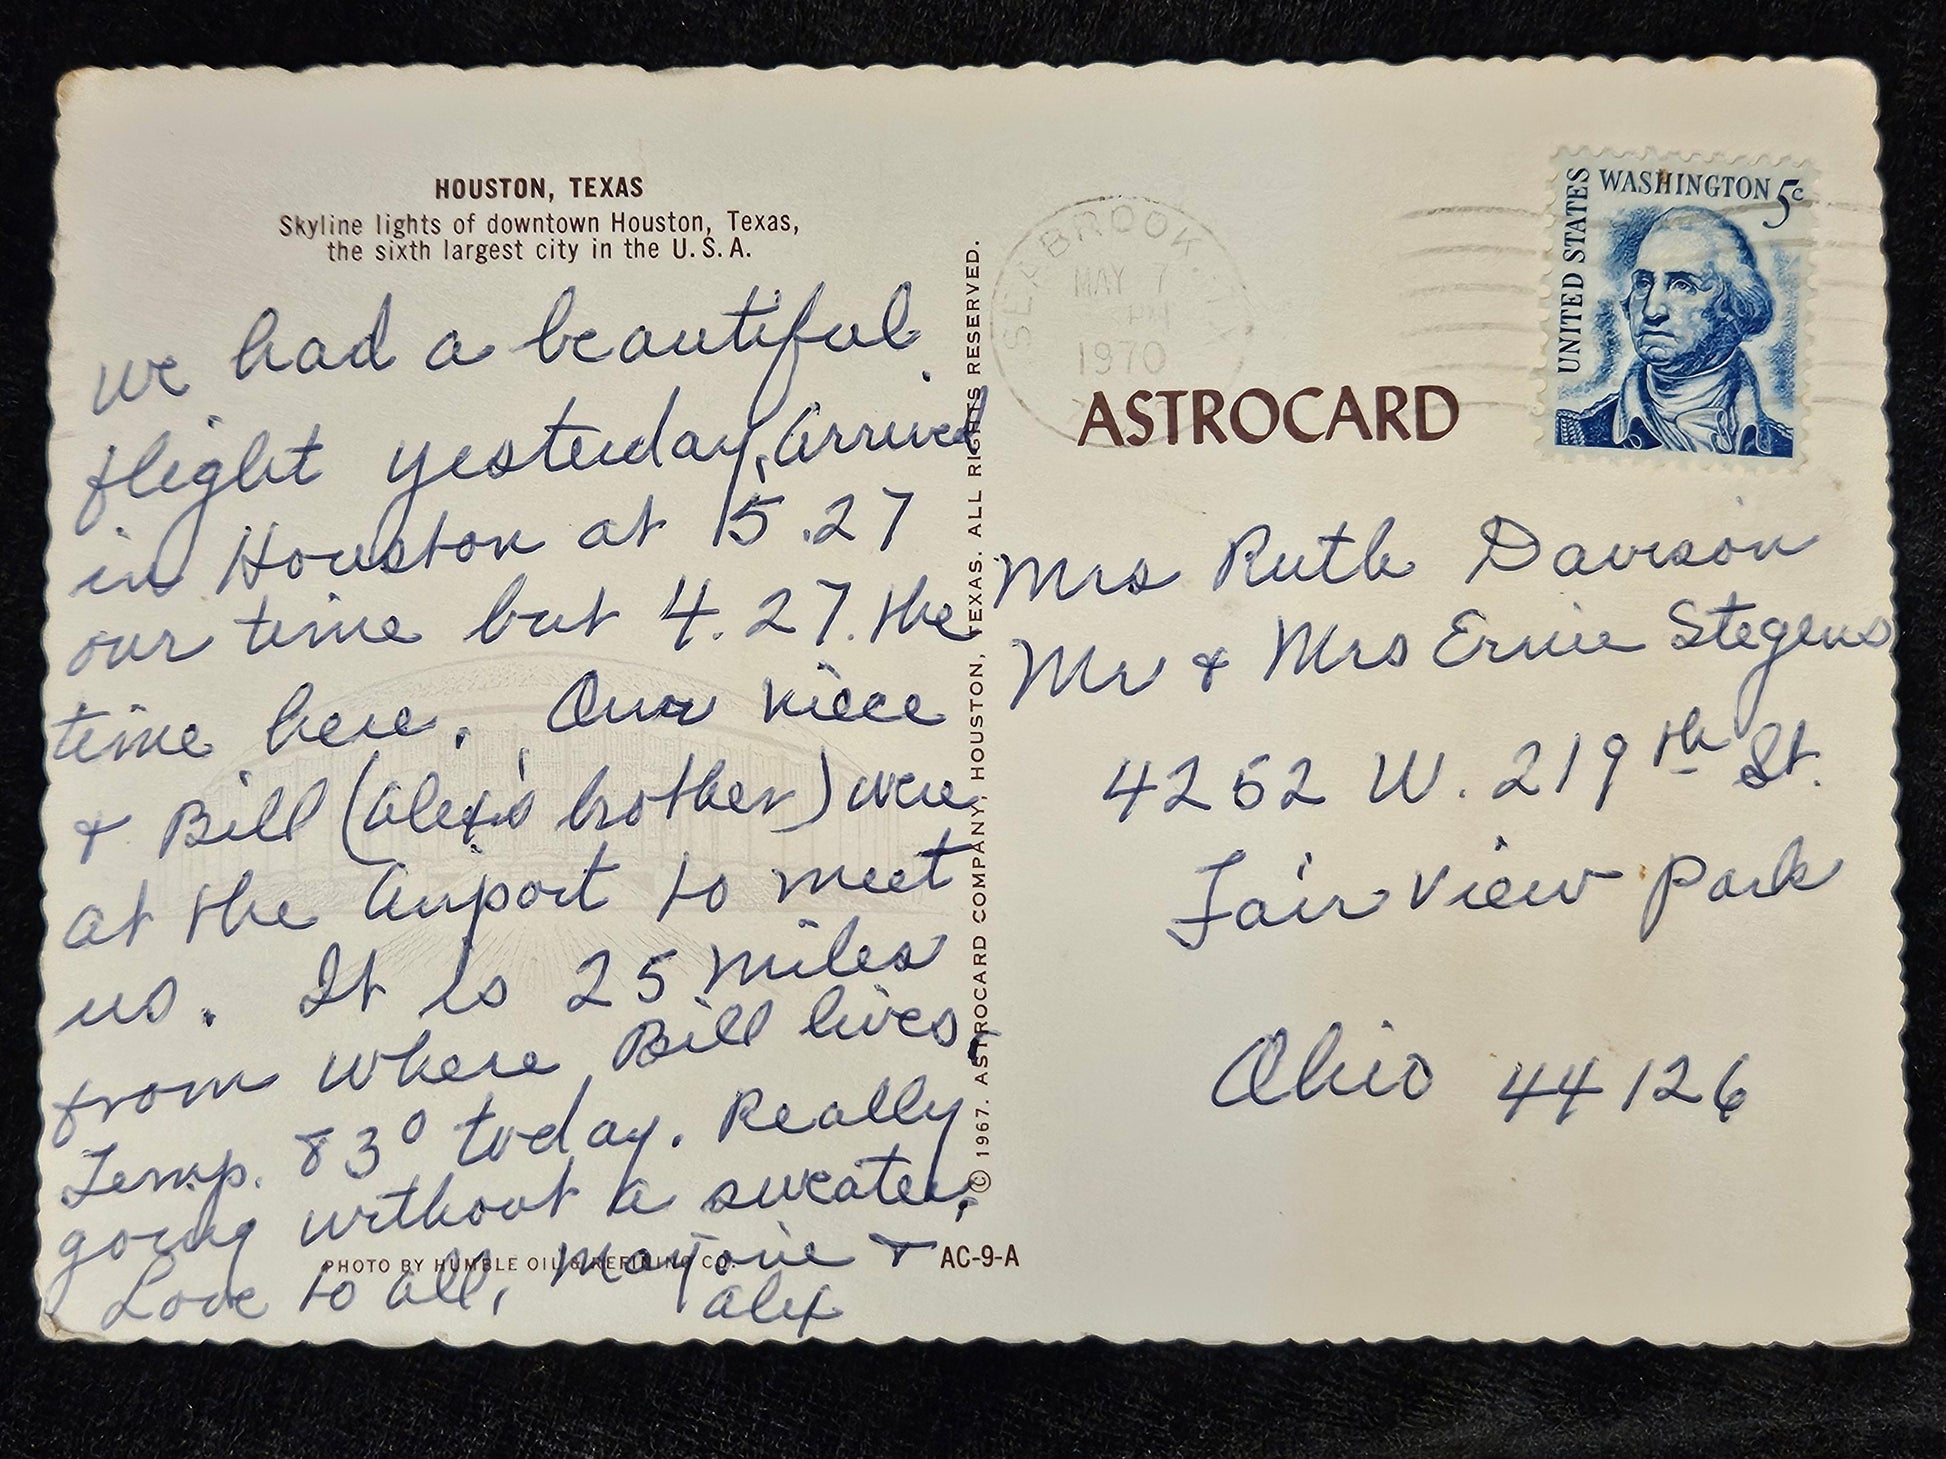 HOUSTON, TEXAS
Skyline lights of downtown Houston, Texas,
the sixth largest city in the U.S.A.
we had a beautiful
flight yesterday. Arrived
in Houston at 5.27
our time but 4.27. the
time here. Our niece
& Bill (Alex's brother) were
at the airport to meet
us. It is 25 miles
from where Bill lives.
Temp. 83° today. Really
going without a sweater.
Love to all, Marjorie &
Alex
PHOTO BY HUMBLE OIL & REFINING CO.
AC-9-A
© 1967. ASTROCARD COMPANY, HOUSTON, TEXAS. ALL RIGHTS RESERVED.
SEABROOK
MAY 7
PM
1970
ASTROCARD
UNITED STATES
WASHINGTON 5c
Mrs Ruth Davison
Mr & Mrs Ernie Stegens
4252 W. 219th St.
Fair View Park
Ohio 44126